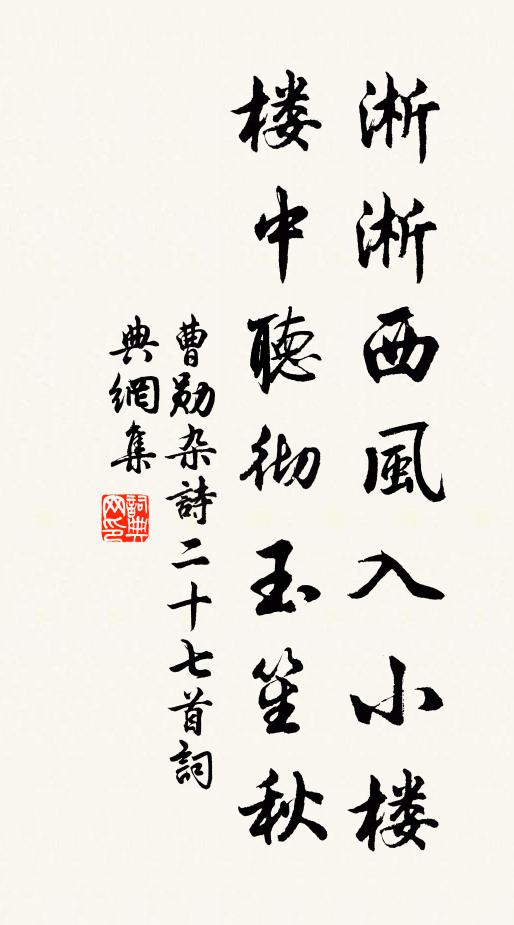 淅淅西風入小楼
楼中聽彻玉笙秋
曹勛杂詩二十七首詞
典網集
詞典
网印